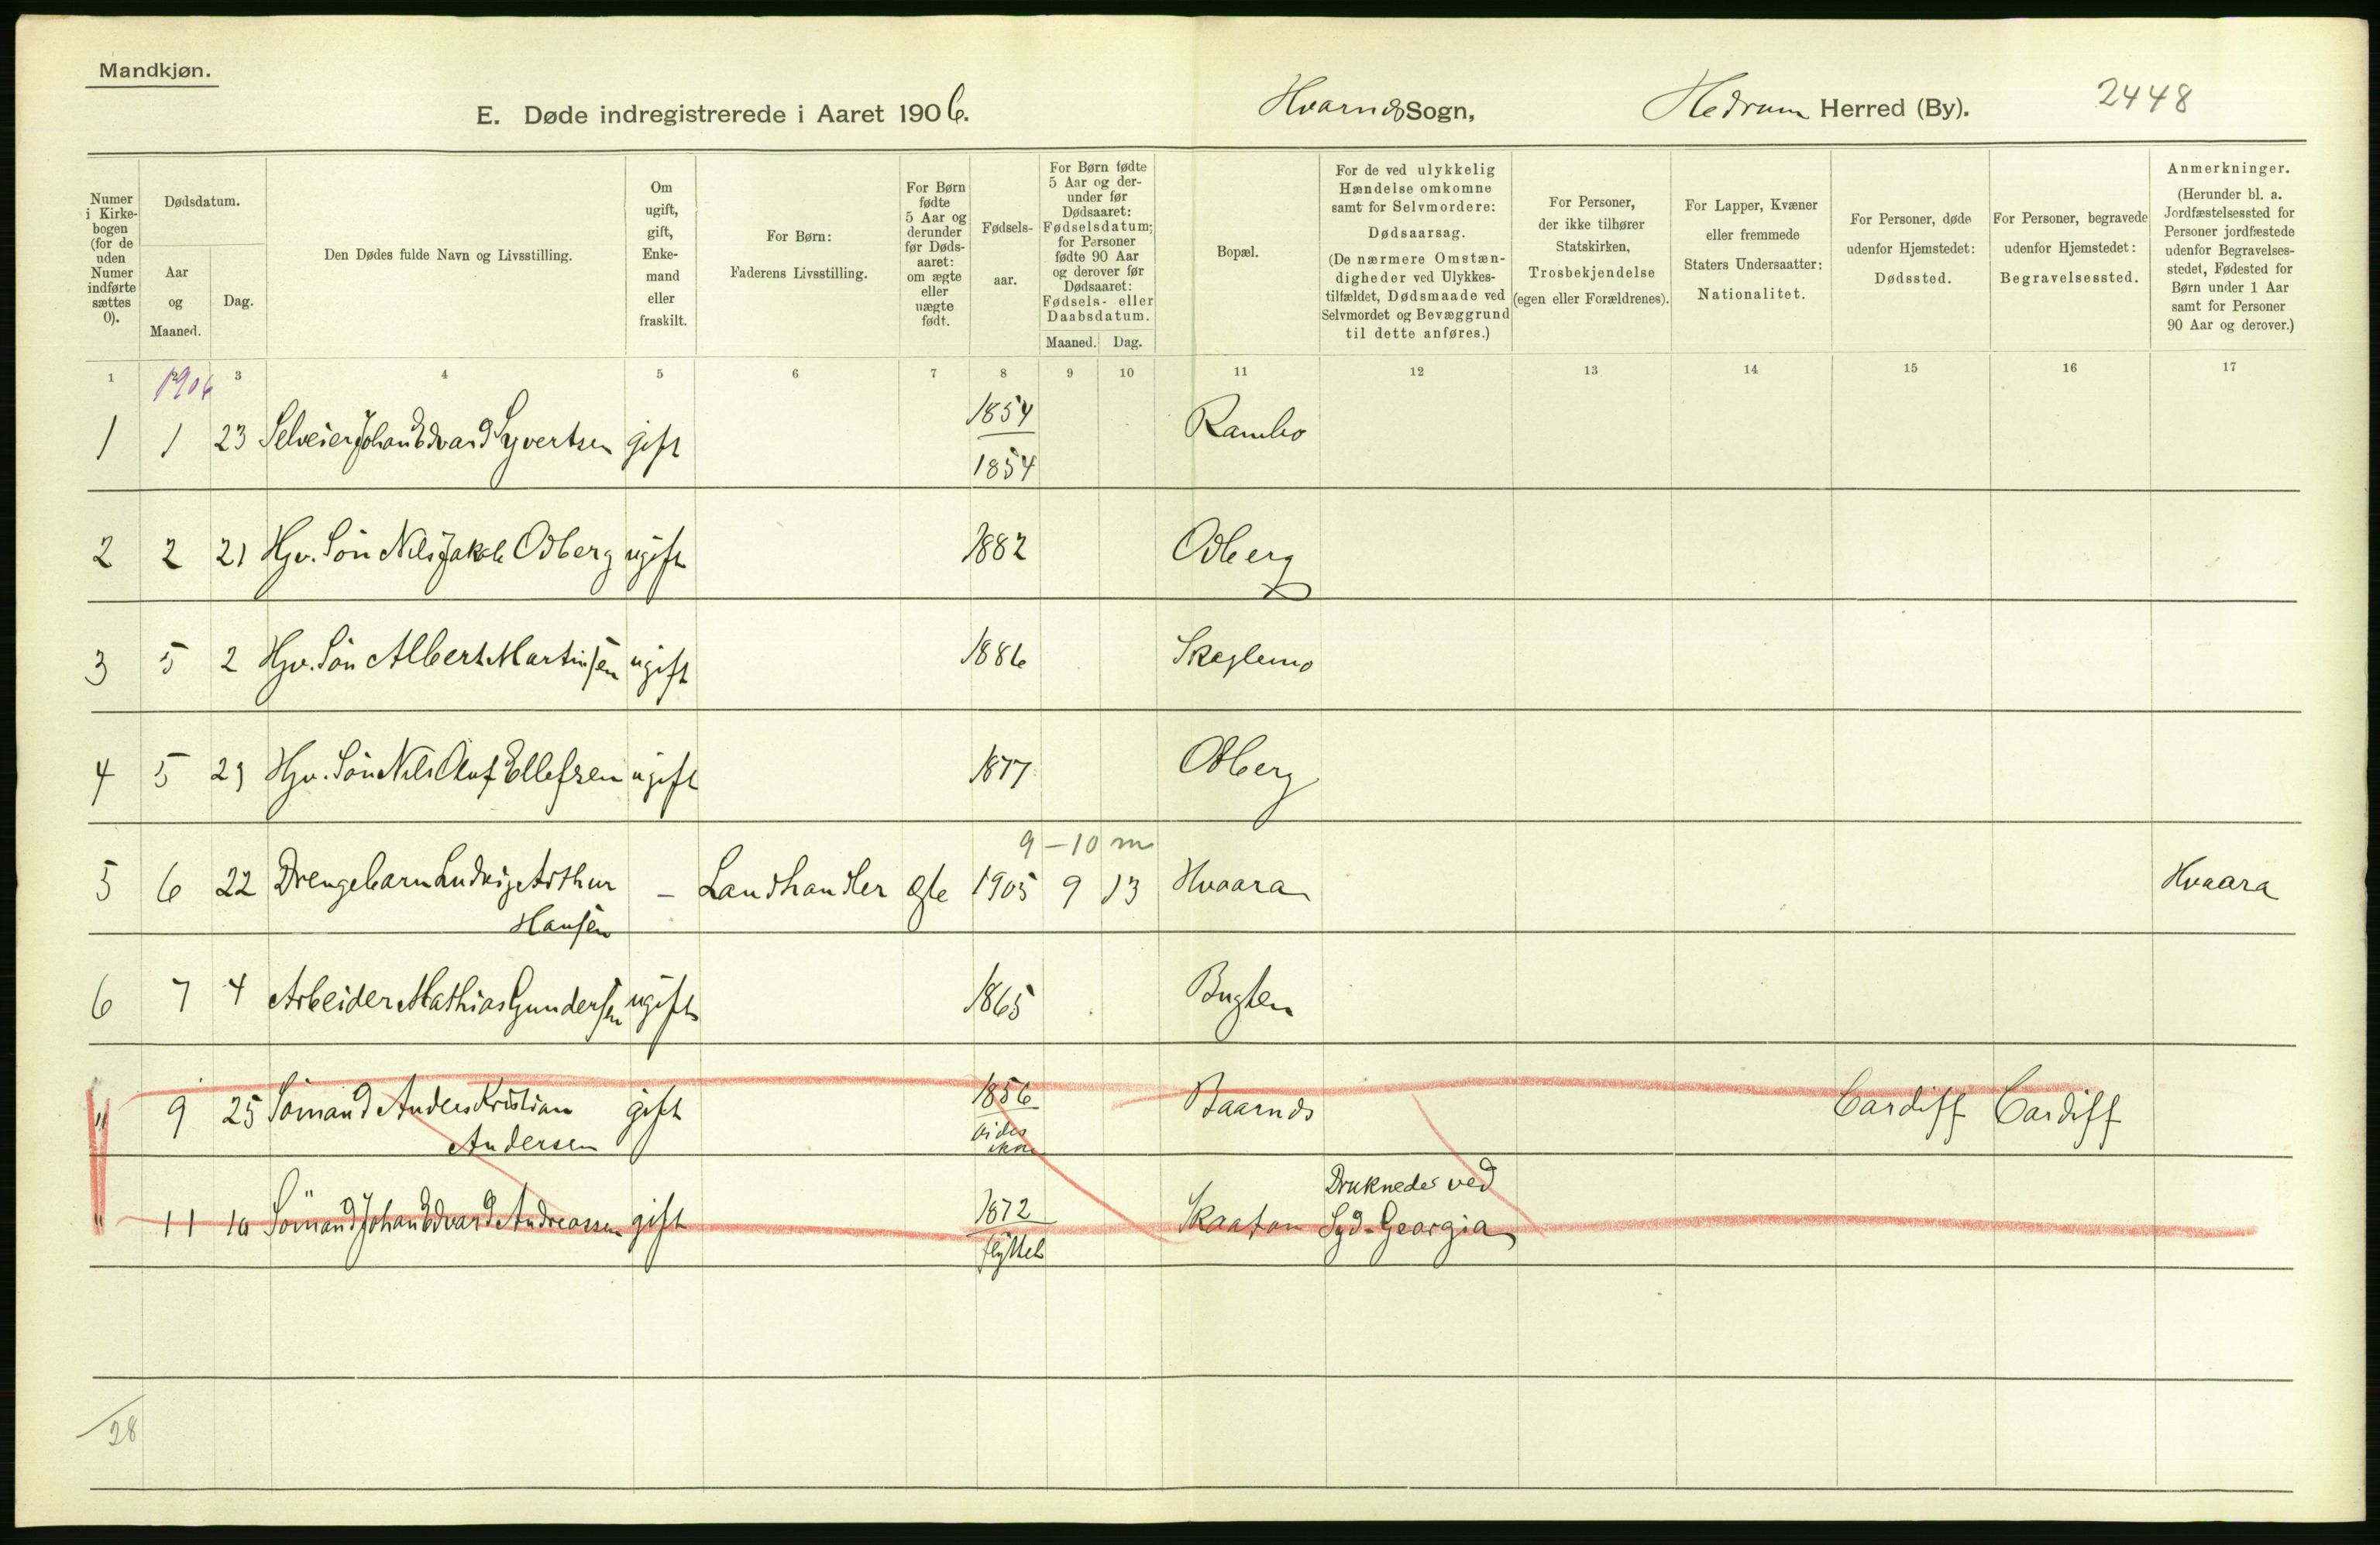 Mandkjøn.
E. Døde indregistrerede i Aaret 1906. Hvarnds Sogn, Hedrum Herred (By). 2448
Numer i Kirkebogen (for de uden Numer indførte sættes 0).
Dødsdatum.
Aar og Maaned.
Dag.
Den Dødes fulde Navn og Livsstilling.
Om ugift, gift, Enkemand eller fraskilt.
For Børn:
Faderens Livsstilling.
For Børn fødte 5 Aar og derunder før Dødsaaret: om ægte eller uægte født.
Fødselsaar.
For Børn fødte 5 Aar og derunder før Dødsaaret: Fødselsdatum; for Personer fødte 90 Aar og derover før Dødsaaret: Fødsels- eller Daabsdatum.
Maaned. Dag.
Bopæl.
For de ved ulykkelig Hændelse omkomne samt for Selvmordere: Dødsaarsag. (De nærmere Omstændigheder ved Ulykkestilfældet, Dødsmaade ved Selvmordet og Bevæggrund til dette anføres.)
For Personer, der ikke tilhører Statskirken, Trosbekjendelse (egen eller Forældrenes).
For Lapper, Kvæner eller fremmede Staters Undersaatter: Nationalitet.
For Personer, døde udenfor Hjemstedet: Dødssted.
For Personer, begravede udenfor Hjemstedet: Begravelsessted.
Anmerkninger.
(Herunder bl. a. Jordfæstelsessted for Personer jordfæstede udenfor Begravelsesstedet, Fødested for Børn under 1 Aar samt for Personer 90 Aar og derover.)
1 2 3 4 5 6 7 8 9 10 11 12 13 14 15 16 17
1906
1 1 23 Selveier Johan Edvard Syvertsen gift 1854 Rambo
1854
2 2 21 Hjv. Søn Nils Jakob Odberg ugift 1882 Odberg
3 5 2 Hjv. Søn Albert Martinsen ugift 1886
4 5 29 Hjv. Søn Nils Oluf Ellefsen ugift 1877 Odberg
9-10 m
5 6 22 Drengebarn Ludvig Arthur - Landhandler ægte 1905 9 13 Hvaara Hvaara
Hansen
6 7 4 Arbeider Mathias Gundersen ugift 1865 Bugten
" 9 25 Sømand Anders Kristian gift 1856 Baarnds Cardiff Cardiff
Andersen vides ikke
Druknedes ved
" 11 10 Sømand Johan Edvard Andreassen gift 1872 Skaatan Syd-Georgia
flyttet
28